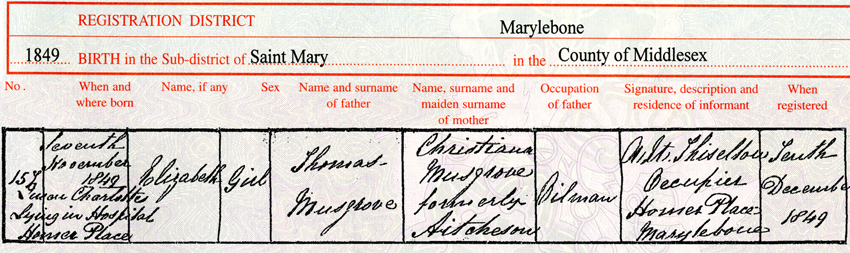 REGISTRATION DISTRICT Marylebone
1849 BIRTH in the Sub-district of Saint Mary in the County of Middlesex
No. When and where born Name, if any Sex Name and surname of father Name, surname and maiden surname of mother Occupation of father Signature, description and residence of informant When registered
Seventh
November
1849
Queen Charlotte
Lying in Hospital
Homer Place
Elizabeth
Girl
Thomas
Musgrove
Christiana
Musgrove
formerly
Aitcheson
Oilman
Occupier
Homer Place
Marylebone
Tenth
December
1849